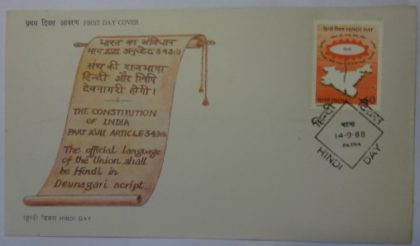 प्रथम दिवस आवरण FIRST DAY COVER
भारत का संविधान
भाग XVII अनुच्छेद 343(1)
संघ की राजभाषा
हिन्दी और लिपि
देवनागरी होगी।
THE CONSTITUTION
OF INDIA
PART XVII ARTICLE 343(1)
The official language
of the Union shall
be Hindi in
Devnagari script.
हिन्दी दिवस HINDI DAY
हिन्दी दिवस HINDI DAY
भारत INDIA
हिन्दी दिवस
पटना
14-9-88
PATNA
HINDI DAY